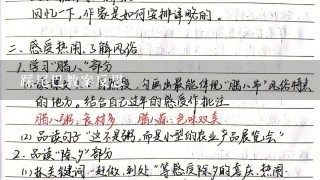 回忆一下,作家是如何安排详略的。
二、感受热闹,了解风俗
1. 学习“腊八”部分
勾画出最能体现“腊八节”风俗特点
的地方。结合自己过年的感受作批注
腊八粥:食材多 腊八蒜:色味双美
(2) 品读句子“这不是粥,而是小型的农业产品展览会”
2. 品读“除夕”部分
(1) 抓关键词,“赶做、到处”等感受除夕的喜庆、热闹